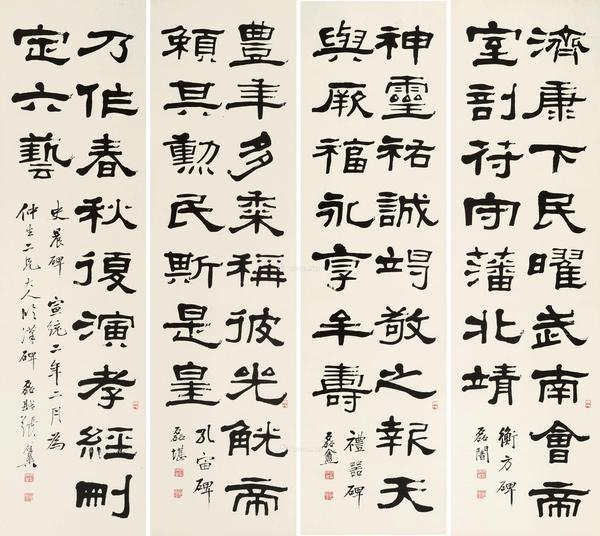 濟康下民曜武南會帝
室剖符守藩北靖
衡方碑
磊閣
神靈祐誠竭敬之報天
與厥福永享牟壽
禮器碑
磊盦
豊年多黍稱彼兕觥帝
賴其勳民斯是皇
孔宙碑
磊堪
乃作春秋復演孝經刪
定六藝
史晨碑 宣統二年二月為
仲生二兄大人臨漢碑 磊 張祖翼